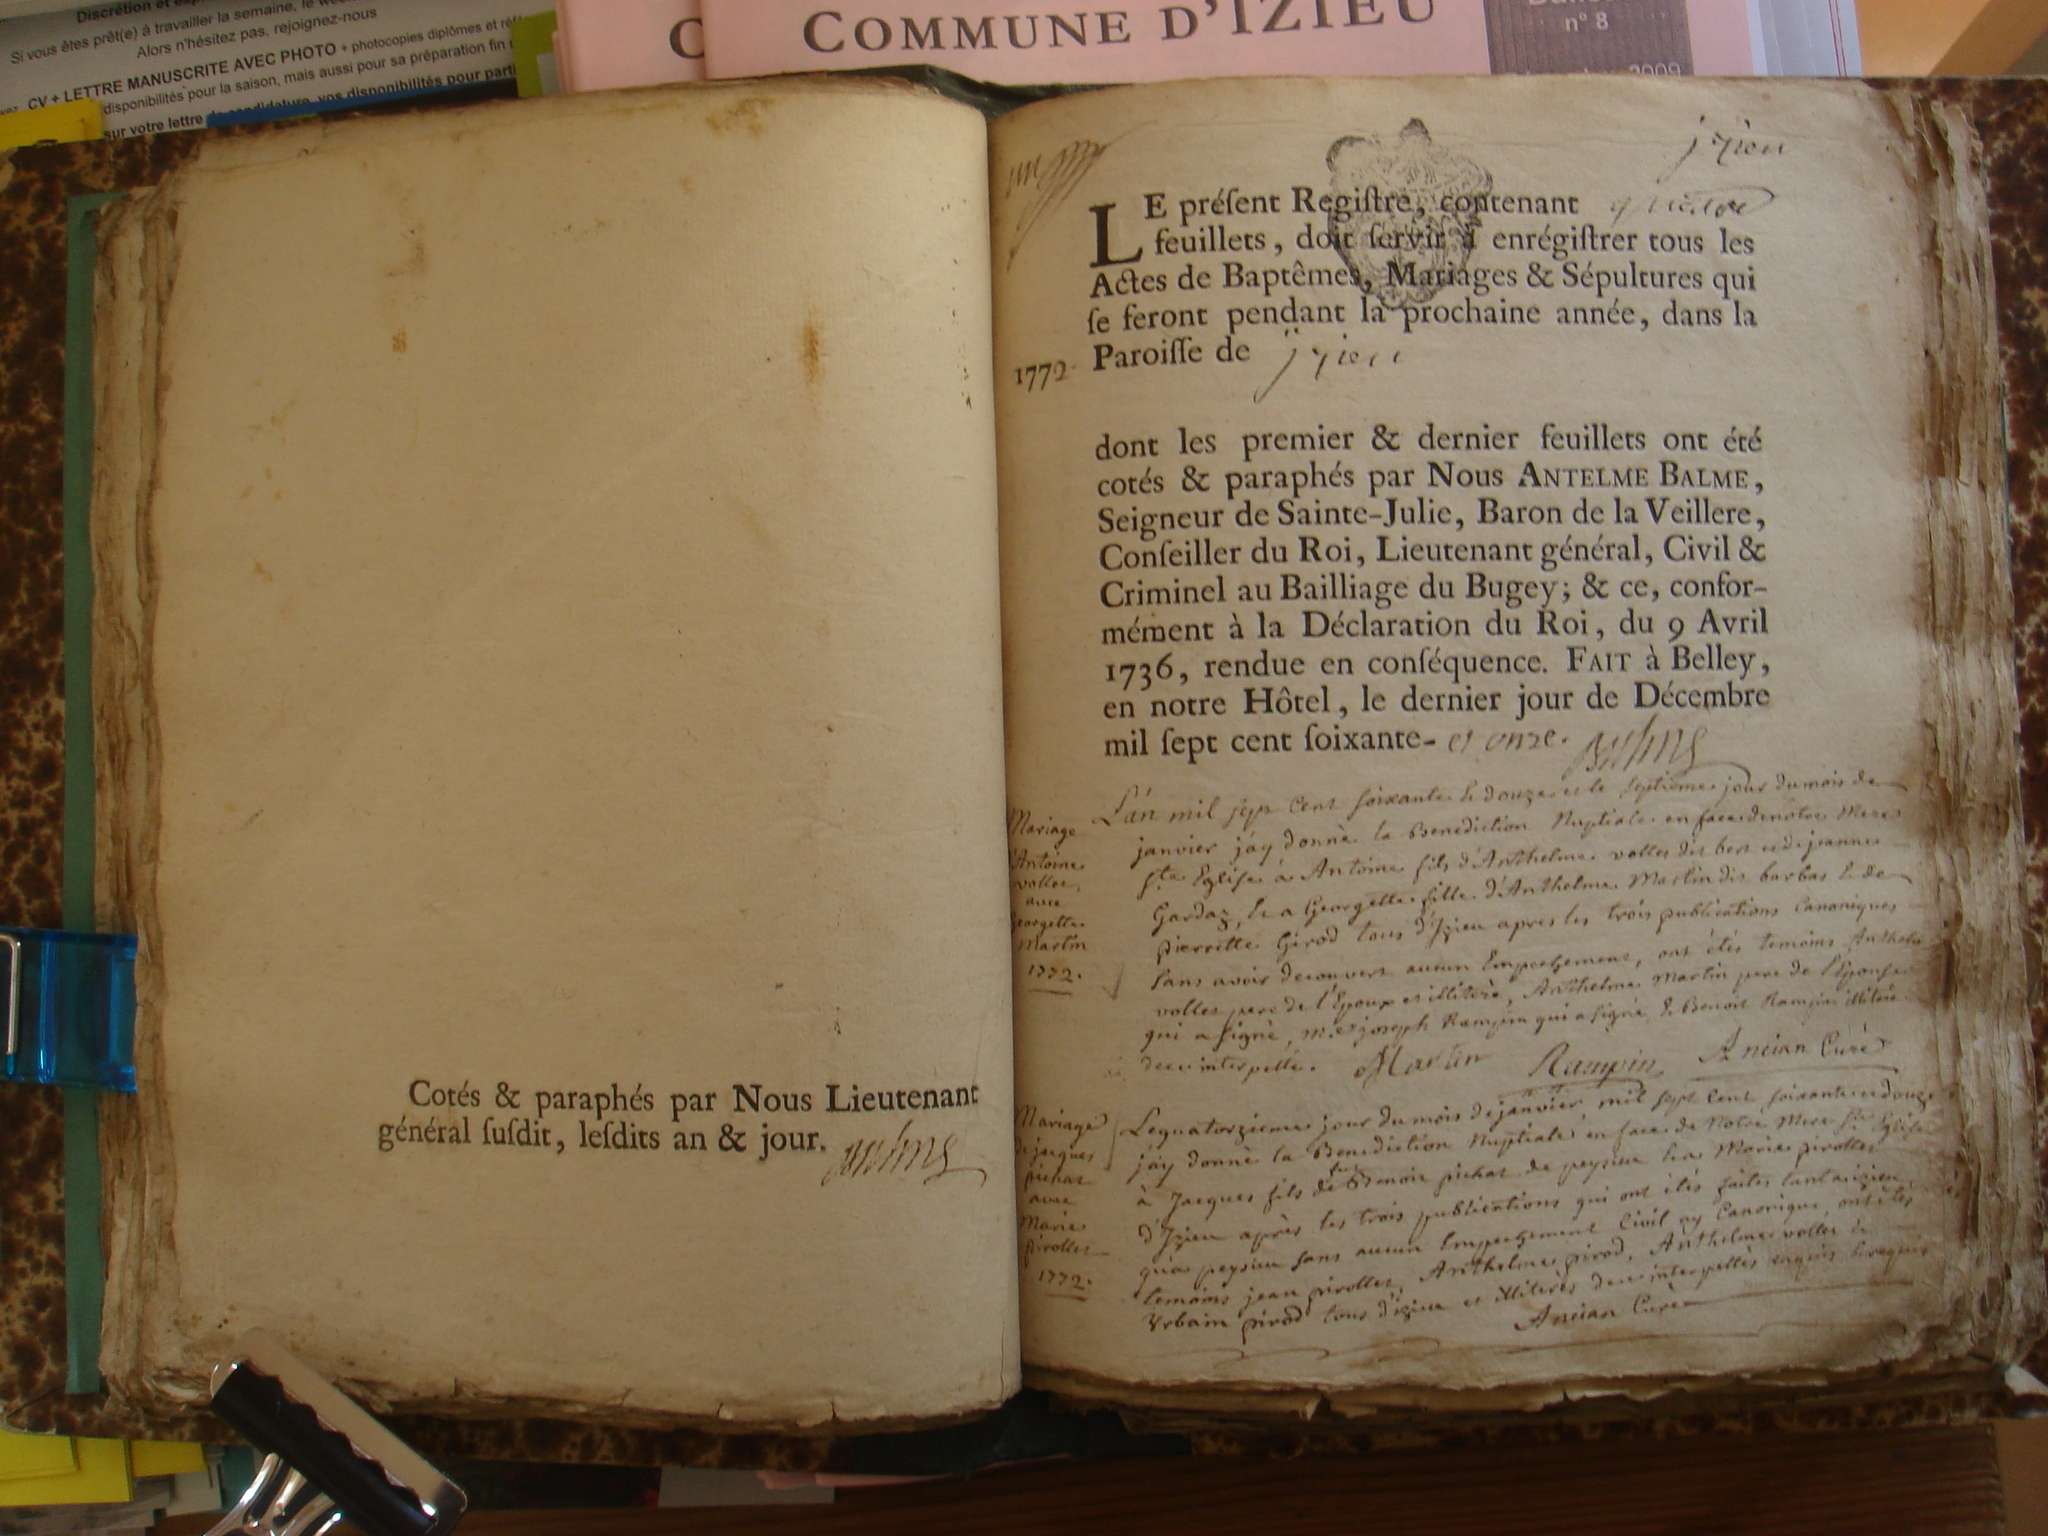 Discrétion et
Si vous êtes prêt(e) à travailler la semaine, le
Alors n'hésitez pas, rejoignez-nous
CV + LETTRE MANUSCRITE AVEC PHOTO + photocopies diplômes et
disponibilités pour la saison, mais aussi pour sa préparation fin
sur votre lettre de candidature, vos disponibilités pour
C
COMMUNE D'IZIEU
n° 8
2009
Cotés & paraphés par Nous Lieutenant
général ſuſdit, leſdits an & jour.
jzieu
LE préſent Regiſtre, contenant quatre
feuillets, doit ſervir à enrégiſtrer tous les
Actes de Baptêmes, Mariages & Sépultures qui
ſe feront pendant la prochaine année, dans la
Paroiſſe de jzieu
1772
dont les premier & dernier feuillets ont été
cotés & paraphés par Nous ANTELME BALME,
Seigneur de Sainte-Julie, Baron de la Veillere,
Conſeiller du Roi, Lieutenant général, Civil &
Criminel au Bailliage du Bugey; & ce, confor-
mément à la Déclaration du Roi, du 9 Avril
1736, rendue en conſéquence. FAIT à Belley,
en notre Hôtel, le dernier jour de Décembre
mil ſept cent ſoixante- et onze.
Mariage
d'Antoine
vollet
avec
Georgette
Martin
1772.
L'an mil sept cent soixante & douze et le septieme jour du mois de
janvier j'ay donné la Benediction Nuptiale en face de notre Mere
ste Eglise à Antoine fils d'Anthelme vollet dit bert et de jeanne
Gardaz, & a Georgette fille d'Anthelme Martin dit barbas & de
pierrette Girod tous d'Izieu apres les trois publications Canoniques
sans avoir decouvert aucun Empechement, ont étés temoins Anthelme
vollet pere de l'Epoux et illiteré, Anthelme Martin pere de l'Epouse
qui a signé, joseph Rampin qui a signé, & Benoit Rampin illiteré
de ce interpellé. Martin Rampin Ancian Curé
Mariage
de jacques
pichat
avec
Marie
pirollet
1772.
Le quatorzieme jour du mois de janvier mil sept cent soixante et douze
j'ay donné la Benediction Nuptiale en face de Notre Mere ste Eglise
à Jacques fils de feu Benoit pichat de peysieu & a Marie pirollet
d'Izieu après les trois publications qui ont étés faites tant a izieu
qu'a peysieu sans aucun Empechement Civil ny Canonique, ont étés
temoins jean pirollet, Anthelme pirod, Anthelme vollet &
Urbain pirod tous d'izieu et illiterés de ce interpellés enquis & requis
Ancian Curé